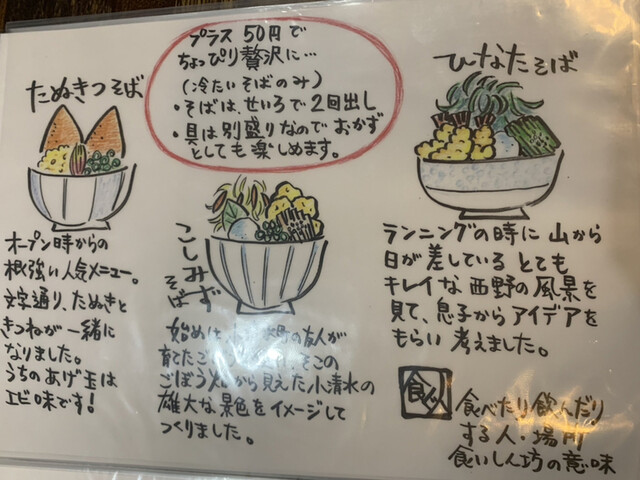 プラス 50円で
ちょっぴり贅沢に…
(冷たいそばのみ)
・そばは、せいろで2回出し
・具は別盛りなのでおかず
としても楽しめます。
たぬきつそば
オープン時からの
根強い人気メニュー。
文字通り、たぬきと
きつねが一緒に
なりました。
うちのあげ玉は
エビ味です!
こしみずそば
始めは、
町の友人が
育てたご
そこの
ごぼう畑から見えた小清水の
雄大な景色をイメージして
つくりました。
ひなたそば
ランニングの時に山から
日が差しているとても
キレイな西野の風景を
見て、息子からアイデアを
もらい考えました。
食人
食べたり飲んだり
する人・場所
食いしん坊の意味